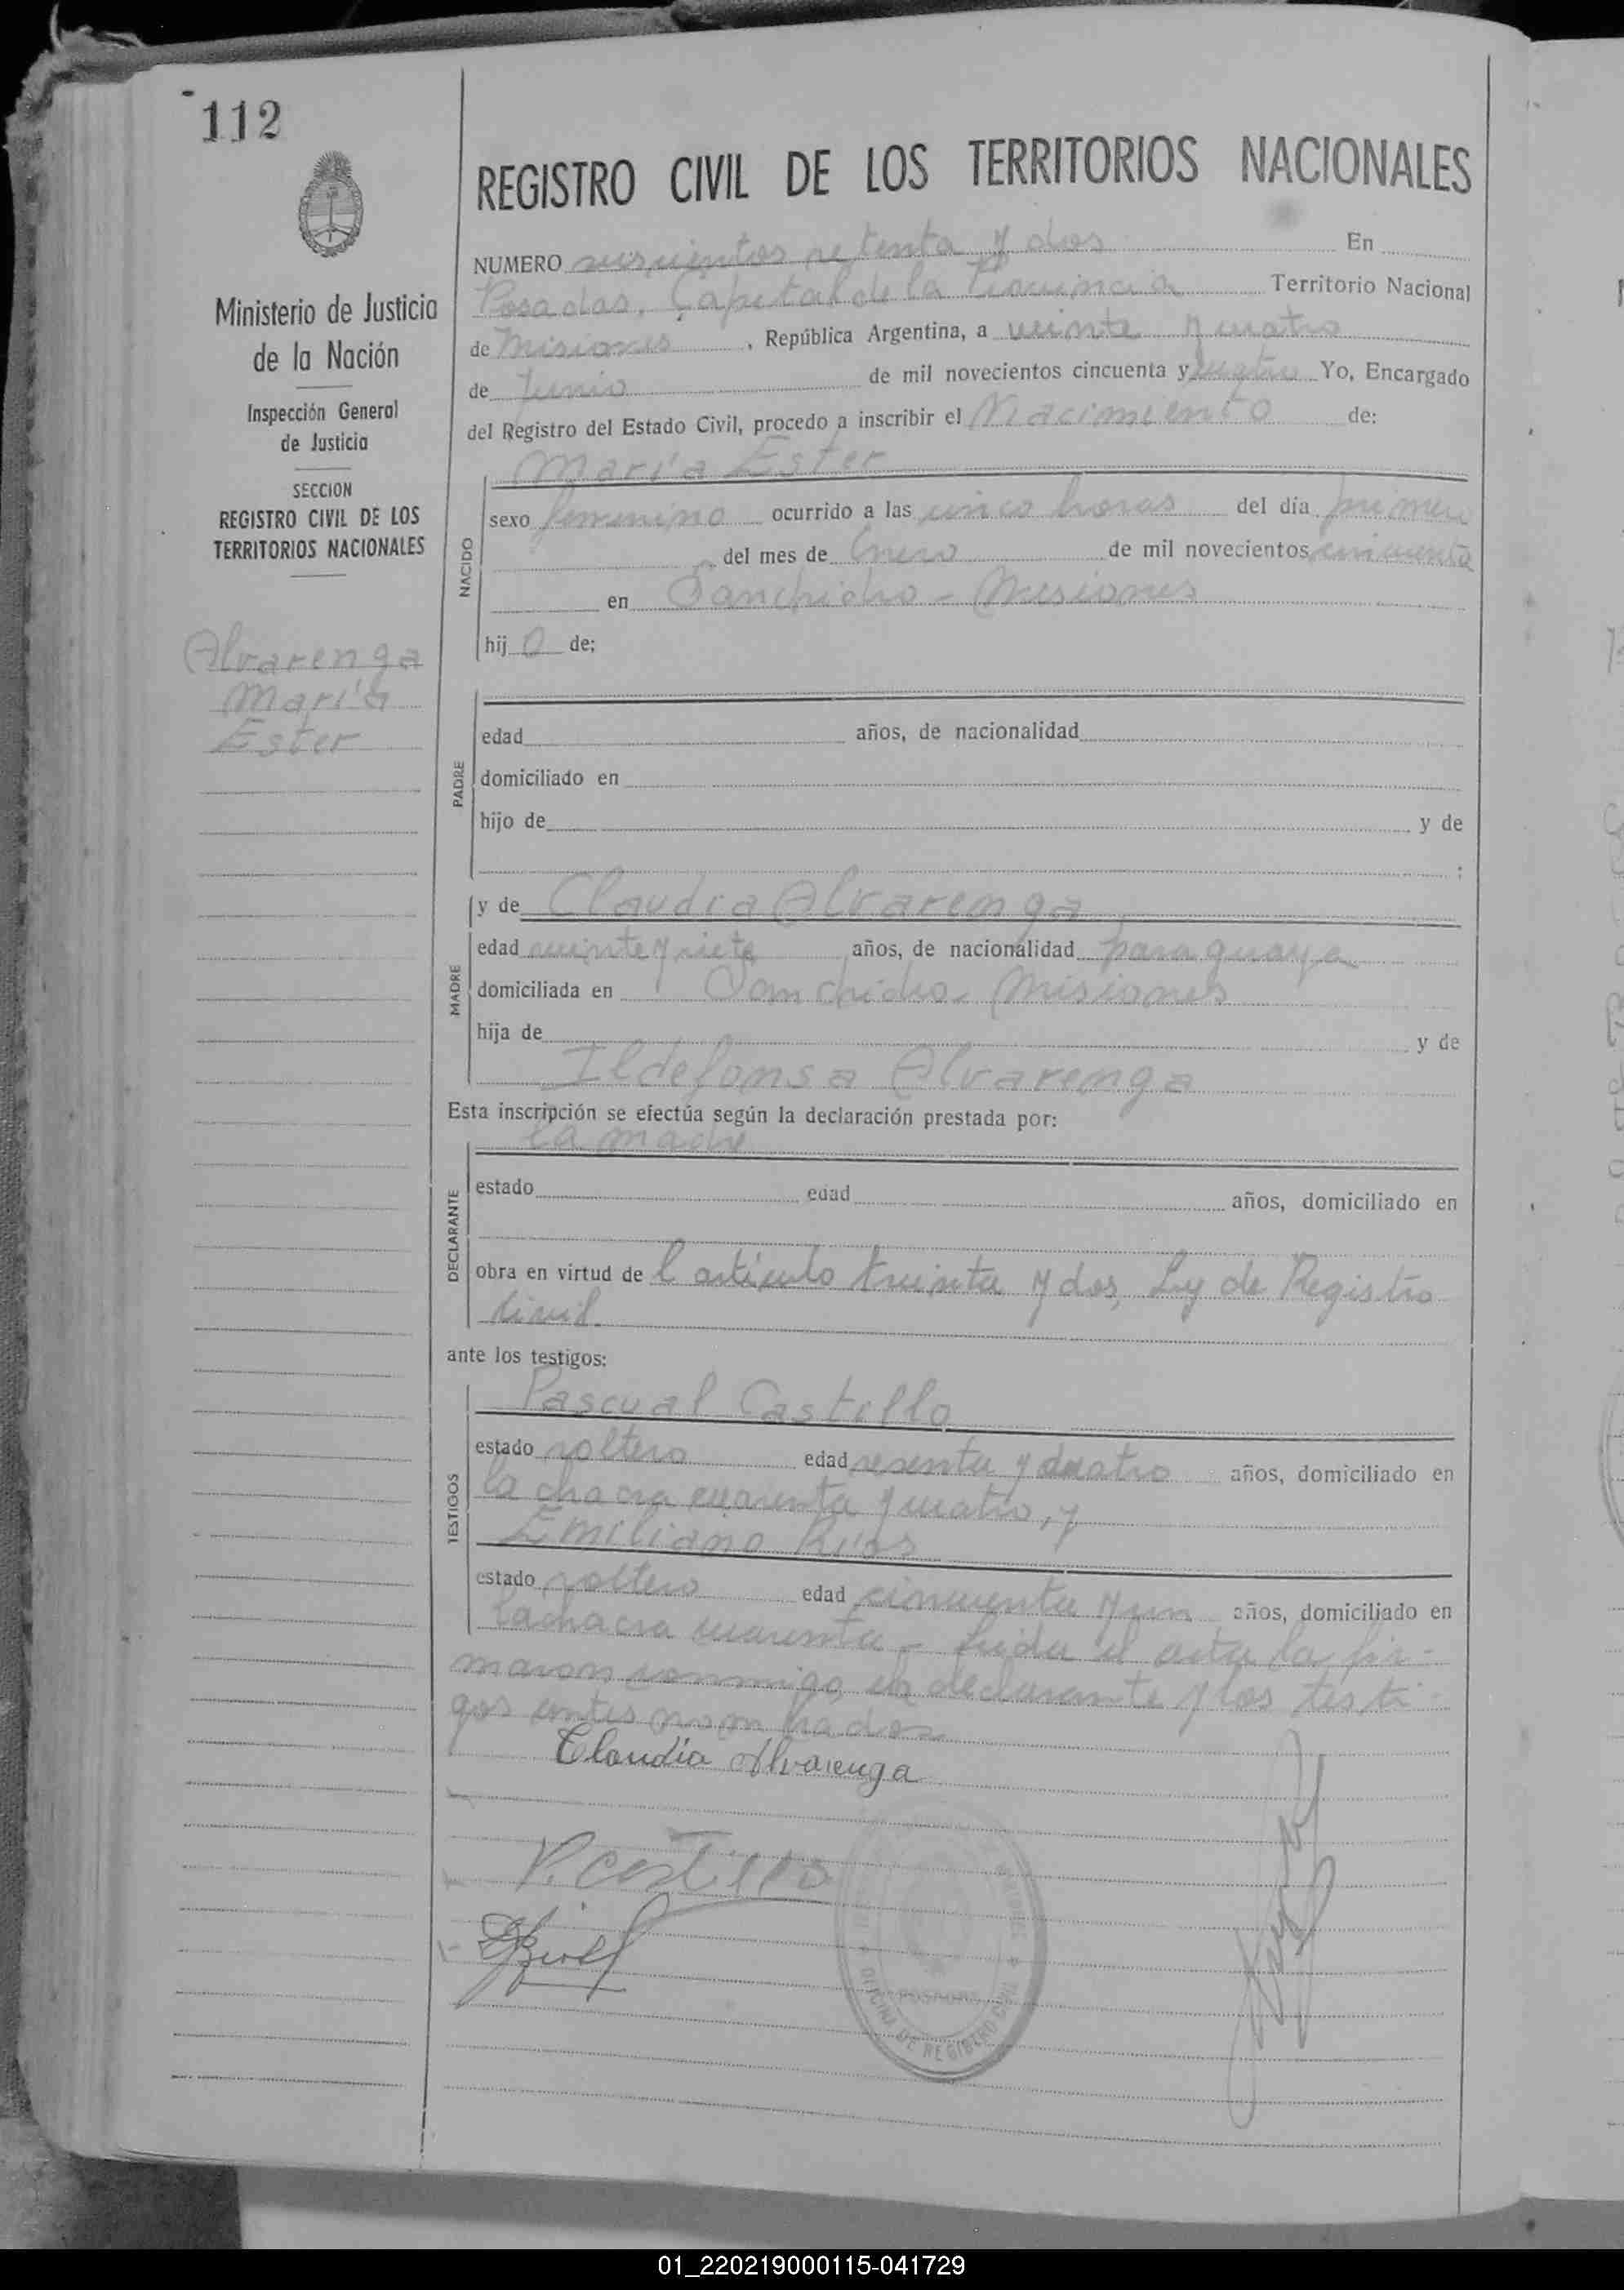 112
REGISTRO CIVIL DE LOS TERRITORIOS NACIONALES
NUMERO seiscientos setenta y dos En
Posadas, Capital de la Provincia Territorio Nacional
de Misiones, República Argentina, a veinte y cuatro
de Junio de mil novecientos cincuenta y cuatro Yo, Encargado
del Registro del Estado Civil, procedo a inscribir el Nacimiento de:
Ministerio de Justicia
de la Nación
Inspección General
de Justicia
SECCION
REGISTRO CIVIL DE LOS
TERRITORIOS NACIONALES
Alvarenga
María
Ester
María Ester
NACIDO
sexo femenino ocurrido a las cinco horas del día primero
del mes de Enero de mil novecientos cincuenta
en - Misiones
hij o de;
PADRE
edad años, de nacionalidad
domiciliado en
hijo de y de
;
y de Claudia Alvarenga
MADRE
edad veinte y siete años, de nacionalidad paraguaya
domiciliada en - Misiones
hija de y de
Ildefonsa Alvarenga
Esta inscripción se efectúa según la declaración prestada por:
la madre
DECLARANTE
estado edad años, domiciliado en
obra en virtud de l artículo treinta y dos, Ley de Registro
Civil.
ante los testigos:
Pascual Castillo
TESTIGOS
estado soltero edad sesenta y cuatro años, domiciliado en
la chacra cuarenta y cuatro, y
Emiliano Ríos
estado soltero edad cincuenta y un años, domiciliado en
la chacra cuarenta - Leida el acta la fir-
maron conmigo, el declarante y los testi-
gos antes nombrados
Claudia Alvarenga
P. Castillo
POSADAS
OFICINA DE REGISTRO CIVIL
01_220219000115-041729